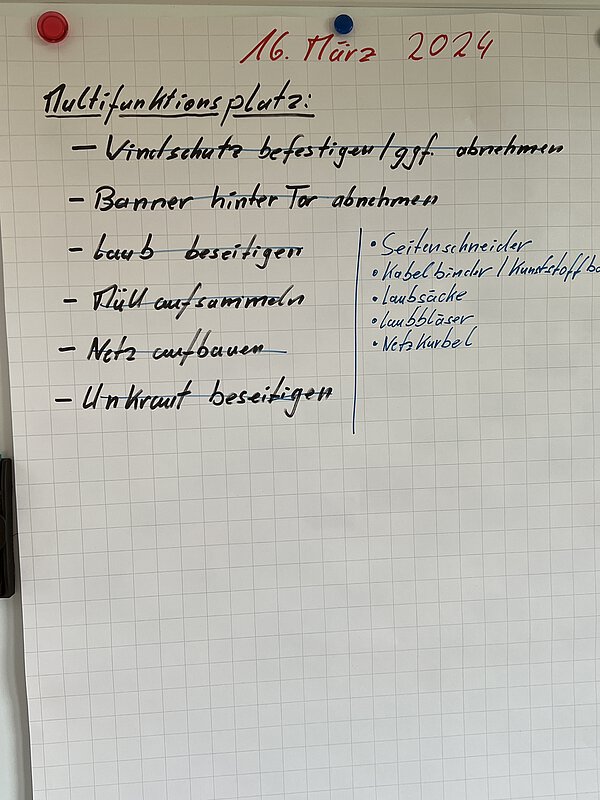 16. März 2024
Multifunktionsplatz:
- Windschutz befestigen / ggf. abnehmen
- Banner hinter Tor abnehmen
- Laub beseitigen
- Müll aufsammeln
- Netz aufbauen
- Unkraut beseitigen
• Seitenschneider
• Kabelbinder / Kunststoffba
• Laubsäcke
• Laubbläser
• Netzkurbel